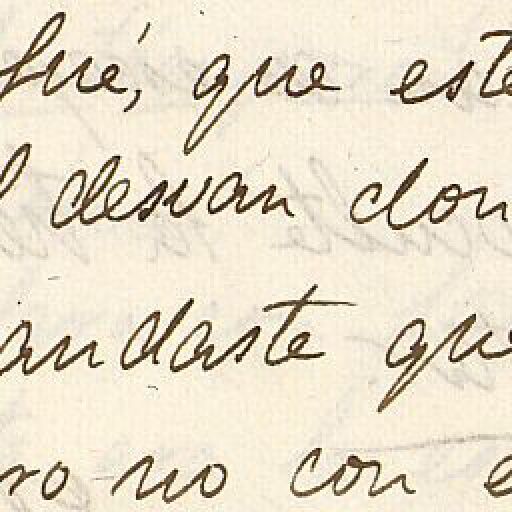 fué, que este
l desvan don
andaste que
ro no con e